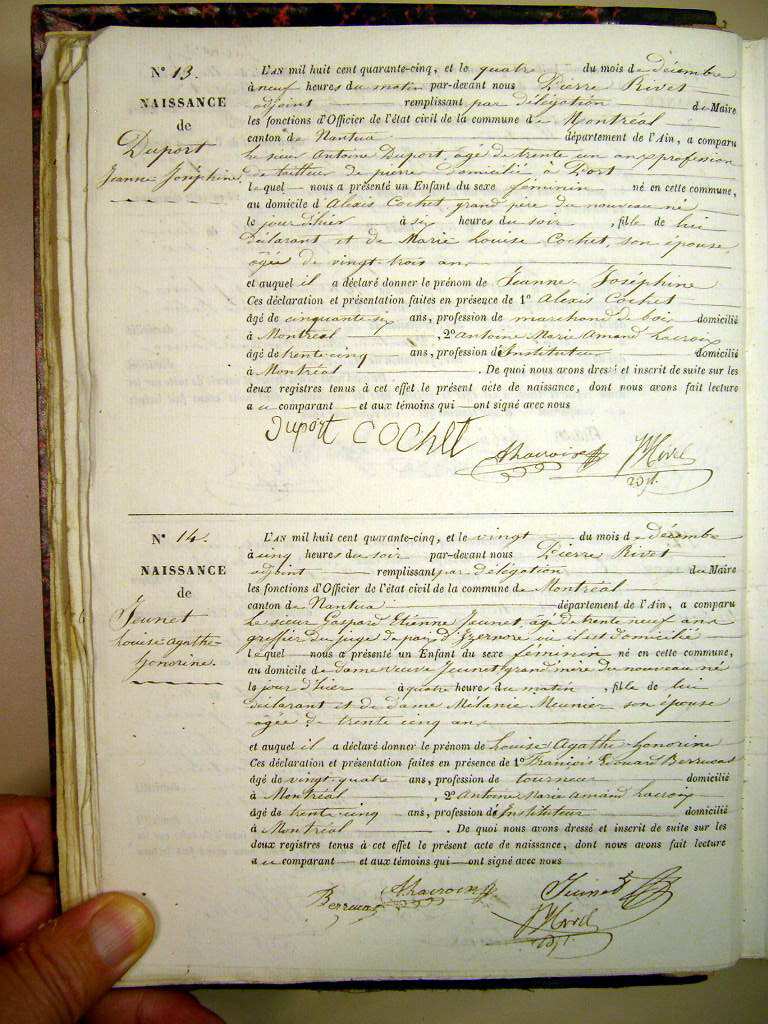 N° 13.
NAISSANCE
de
Duport
Jeanne Joséphine.
L'AN mil huit cent quarante-cinq, et le quatre du mois de décembre
à neuf heures du matin par-devant nous Pierre Rivet
adjoint remplissant par délégation du Maire
les fonctions d'Officier de l'état civil de la commune de Montréal
canton de Nantua département de l'Ain, a comparu
le sieur Antoine Duport, âgé de trente un ans profession
de tailleur de pierre domicilié à Port
lequel nous a présenté un Enfant du sexe féminin né en cette commune,
au domicile d'Alexis Cochet grand père du nouveau né
le jour d'hier à six heures du soir, fille de lui
déclarant et de Marie Louise Cochet, son épouse,
âgée de vingt-trois ans
et auquel il a déclaré donner le prénom de Jeanne Joséphine
Ces déclaration et présentation faites en présence de 1° Alexis Cochet
âgé de cinquante-six ans, profession de marchand de bois domicilié
à Montréal, 2° Antoine Marie Amand Lacroix
âgé de trente cinq ans, profession d'Instituteur domicilié
à Montréal. De quoi nous avons dressé et inscrit de suite sur les
deux registres tenus à cet effet le présent acte de naissance, dont nous avons fait lecture
a u comparant et aux témoins qui ont signé avec nous
Duport COCHET ALacroix Rivet
adjt.
N° 14.
NAISSANCE
de
Jeunet
Louise-Agathe-
honorine.
L'AN mil huit cent quarante-cinq, et le vingt du mois de décembre
à cinq heures du soir par-devant nous Pierre Rivet
adjoint remplissant par délégation du Maire
les fonctions d'Officier de l'état civil de la commune de Montréal
canton de Nantua département de l'Ain, a comparu
le sieur Gaspard Etienne Jeunet, âgé de trente neuf ans
greffier du juge de paix d'Izernore où il est domicilié
lequel nous a présenté un Enfant du sexe féminin né en cette commune,
au domicile de dame veuve Jeunet grand'mère du nouveau né
le jour d'hier à quatre heures du matin, fille de lui
déclarant et de dame Mélanie Meunier son épouse
âgée de trente cinq ans
et auquel il a déclaré donner le prénom de Louise Agathe honorine
Ces déclaration et présentation faites en présence de 1° François Edouard Berrucas
âgé de vingt-quatre ans, profession de tourneur domicilié
à Montréal, 2° Antoine Marie Amand Lacroix
âgé de trente cinq ans, profession d'Instituteur domicilié
à Montréal. De quoi nous avons dressé et inscrit de suite sur les
deux registres tenus à cet effet le présent acte de naissance, dont nous avons fait lecture
a u comparant et aux témoins qui ont signé avec nous
Berrucas ALacroix Jeunet
Rivet
adjt.